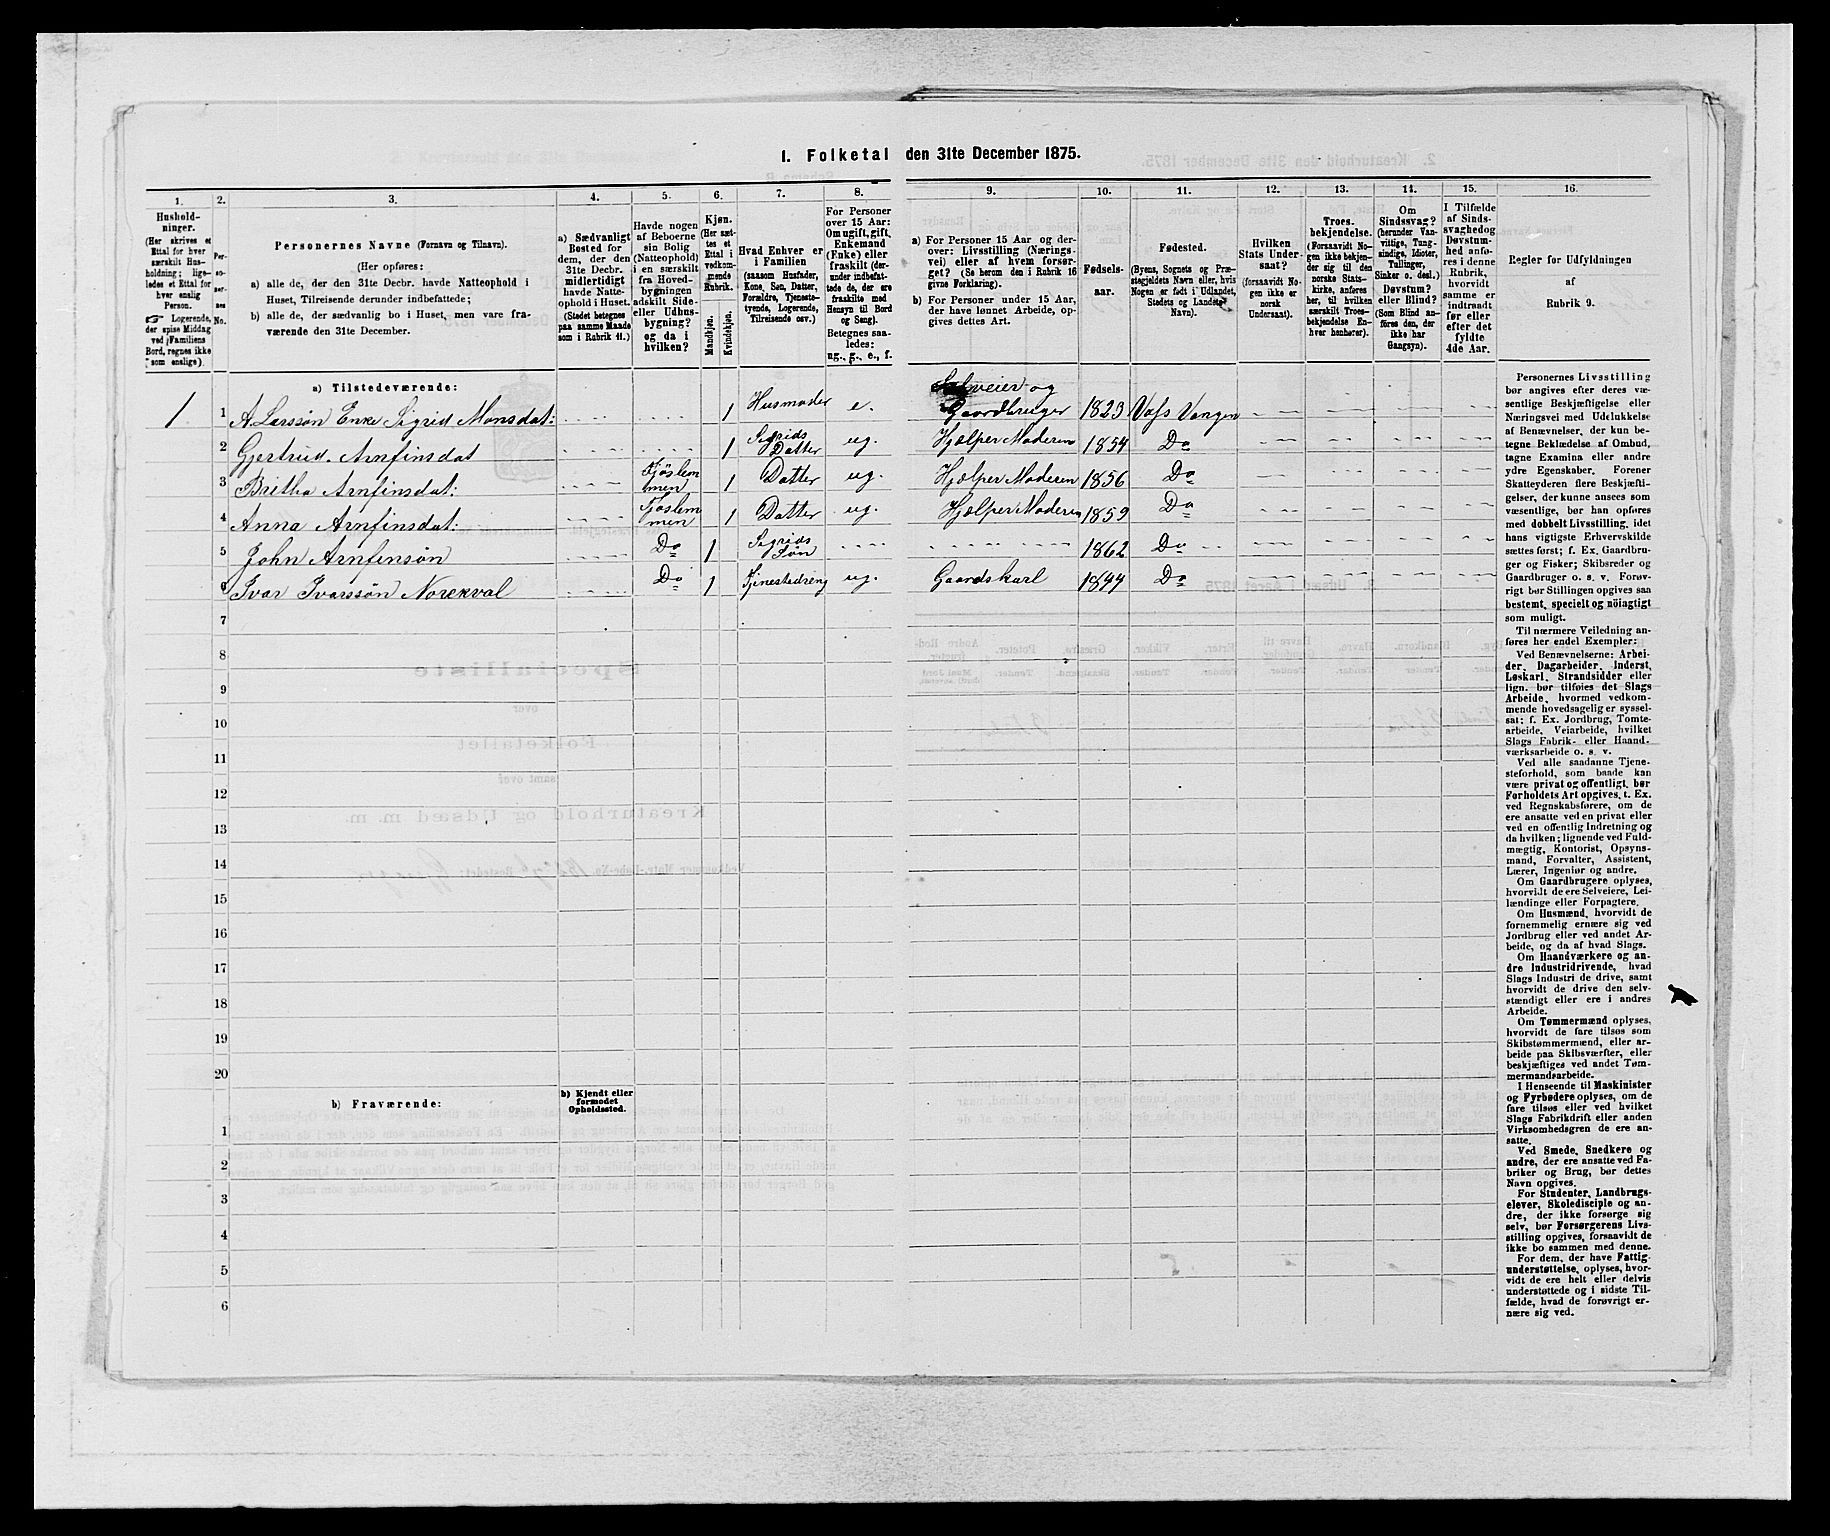 1. Folketal den 31te December 1875.
1.
2.
3.
4.
5.
6.
7.
8.
9.
10.
11.
12.
13.
14.
15.
16.
Hushold-
ninger.
(Her skrives et
Ettal for hver
særskilt Hus-
holdning; lige-
ledes et Ettal for
hver enslig
Person.
☞ Logerende,
der spise Middag
ved Familiens
Bord, regnes ikke
som enslige).
Per-
so-
ner-
nes
No.
Personernes Navne (Fornavn og Tilnavn).
(Her opføres:
a) alle de, der den 31te Decbr. havde Natteophold i
Huset, Tilreisende derunder indbefattede;
b) alle de, der sædvanlig bo i Huset, men vare fra-
værende den 31te December.
a) Sædvanligt
Bosted for
dem, der den
31te Decbr.
midlertidigt
havde Natte-
ophold i Huset.
(Stedet betegnes
paa samme Maade
som i Rubrik 11.)
Havde nogen
af Beboerne
sin Bolig
(Natteophold)
i en særskilt
fra Hoved-
bygningen
adskilt Side-
eller Udhus-
bygning?
og da i
hvilken?
Kjøn.
(Her sæt-
tes et
Ettal i
vedkom-
mende
Rubrik.
Mandkjøn.
Kvindekjøn.
Hvad Enhver er
i Familien
(saasom Husfader,
Kone, Søn, Datter,
Forældre, Tjeneste-
tyende, Logerende,
Tilreisende osv.)
For Personer
over 15 Aar:
Om ugift, gift,
Enkemand
(Enke) eller
fraskilt (der-
under indbefat-
tede de, der ere
fraskilte med
Hensyn til Bord
og Seng).
Betegnes saa-
ledes:
ug., g., e., f.
a) For Personer 15 Aar og der-
over: Livsstilling (Nærings-
vei) eller af hvem forsør-
get? (Se herom den i Rubrik 16
givne Forklaring).
b) For Personer under 15 Aar,
der have lønnet Arbeide, op-
gives dettes Art.
Fødsels-
aar.
Fødested.
(Byens, Sognets og Præ-
stegjeldets Navn eller, hvis
Nogen er født i Udlandet,
Stedets og Landets
Navn).
Hvilken
Stats Under-
saat?
(forsaavidt No-
gen ikke er
norsk
Undersaat).
Troes-
bekjendelse.
(Forsaavidt No-
gen ikke bekjen-
der sig til den
norske Stats-
kirke, anføres
her, til hvilken
særskilt Troes-
bekjendelse En-
hver henhører).
Om
Sindssvag?
(herunder Van-
vittige, Tung-
sindige, Idioter,
Tullinger,
Sinker o. desl.)
Døvstum?
eller Blind?
(Som Blind an-
føres den, der
ikke har
Gangsyn).
I Tilfælde
af Sinds-
svaghed og
Døvstum-
hed anfø-
res i denne
Rubrik,
hvorvidt
samme er
indtraadt
før eller
efter det
fyldte
4de Aar.
Regler for Udfyldningen
af
Rubrik 9.
a) Tilstedeværende:
1 1 A Larssøn Enke Sigrid Monsdat: 1 Husmoder e. Selveier og Gaardbruger 1823 Vofs Vangen
2 Gjertrud Arnfinsdat 1 Sigrids Datter ug. Hjelper Moderen 1854 Do
3 Britha Arnfinsdat: Fjöslem men 1 Datter ug. Hjelper Moderen 1856 Do
4 Anna Arnfinsdat: Fjöslem men 1 Datter ug. Hjelper Moderen 1859 Do
5 John Arnfinsön Do 1 Sigrids Søn 1862 Do
6 Ivar Ivarssön Norekval Do 1 Tjenestedreng ug. Gaardskarl 1844 Do
7
8
9
10
11
12
13
14
15
16
17
18
19
20
b) Fraværende:
b) Kjendt eller
formodet
Opholdssted.
1
2
3
4
5
6
Personernes Livsstilling
bør angives efter deres væ-
sentlige Beskjæftigelse eller
Næringsvei med Udelukkelse
af Benævnelser, der kun be-
tegne Beklædelse af Ombud,
tagne Examina eller andre
ydre Egenskaber. Forener
Skatteyderen flere Beskjæfti-
gelser, der kunne ansees som
væsentlige, bør han opføres
med dobbelt Livsstilling, idet
hans vigtigste Erhvervskilde
sættes først; f. Ex. Gaardbru-
ger og Fisker; Skibsreder og
Gaardbruger o. s. v. Forøv-
rigt bør Stillingen opgives saa
bestemt, specielt og nöiagtigt
som muligt.
Til nærmere Veiledning an-
føres her endel Exempler:
Ved Benævnelserne: Arbei-
der, Dagarbeider, Inderst,
Løskarl, Strandsidder eller
lign. bør tilføies det Slags
Arbeide, hvormed vedkom-
mende hovedsagelig er syssel-
sat; f. Ex. Jordbrug, Tomte-
arbeide, Veiarbeide, hvilket
Slags Fabrik- eller Haand-
værksarbeide o. s. v.
Ved alle saadanne Tjene-
steforhold, som baade kan
være privat og offentligt, bør
Forholdets Art opgives, t. Ex.
ved Regnskabsførere, om de
ere ansatte ved en privat eller
ved en offentlig Indretning og
da hvilken; lignende ved Fuld-
mægtig, Kontorist, Opsyns-
mand, Forvalter, Assistent,
Lærer, Ingeniør og andre.
Om Gaardbrugere oplyses,
hvorvidt de ere Selveiere, Lei-
lændinge eller Forpagtere.
Om Husmænd, hvorvidt de
fornemmelig ernære sig ved
Jordbrug eller ved andet Ar-
beide, og da af hvad Slags.
Om Haandværkere og an-
dre Industridrivende, hvad
Slags Industri de drive, samt
hvorvidt de drive den selv-
stændigt eller ere i andres
Arbeide.
Om Tømmermænd oplyses,
hvorvidt de fare tilsøs som
Skibstømmermænd, eller ar-
beide paa Skibsværfter, eller
beskjæftiges ved andet Tøm-
mermandsarbeide.
I Henseende til Maskinister
og Fyrbødere oplyses, om de
fare tilsøs eller ved hvilket
Slags Fabrikdrift eller anden
Virksomhedsgren de ere an-
satte.
Ved Smede, Snedkere og
andre, der ere ansatte ved Fa-
briker og Brug, bør dettes
Navn opgives.
For Studenter, Landbrugs-
elever, Skoledisciple og an-
dre, der ikke forsørge sig
selv, bør Forsørgerens Livs-
stilling opgives, forsaavidt de
ikke bo sammen med denne.
For dem, der have Fattig-
understøttelse, oplyses, hvor-
vidt de ere helt eller delvis
understøttede og i sidste Til-
fælde, hvad de forøvrigt er-
nære sig ved.